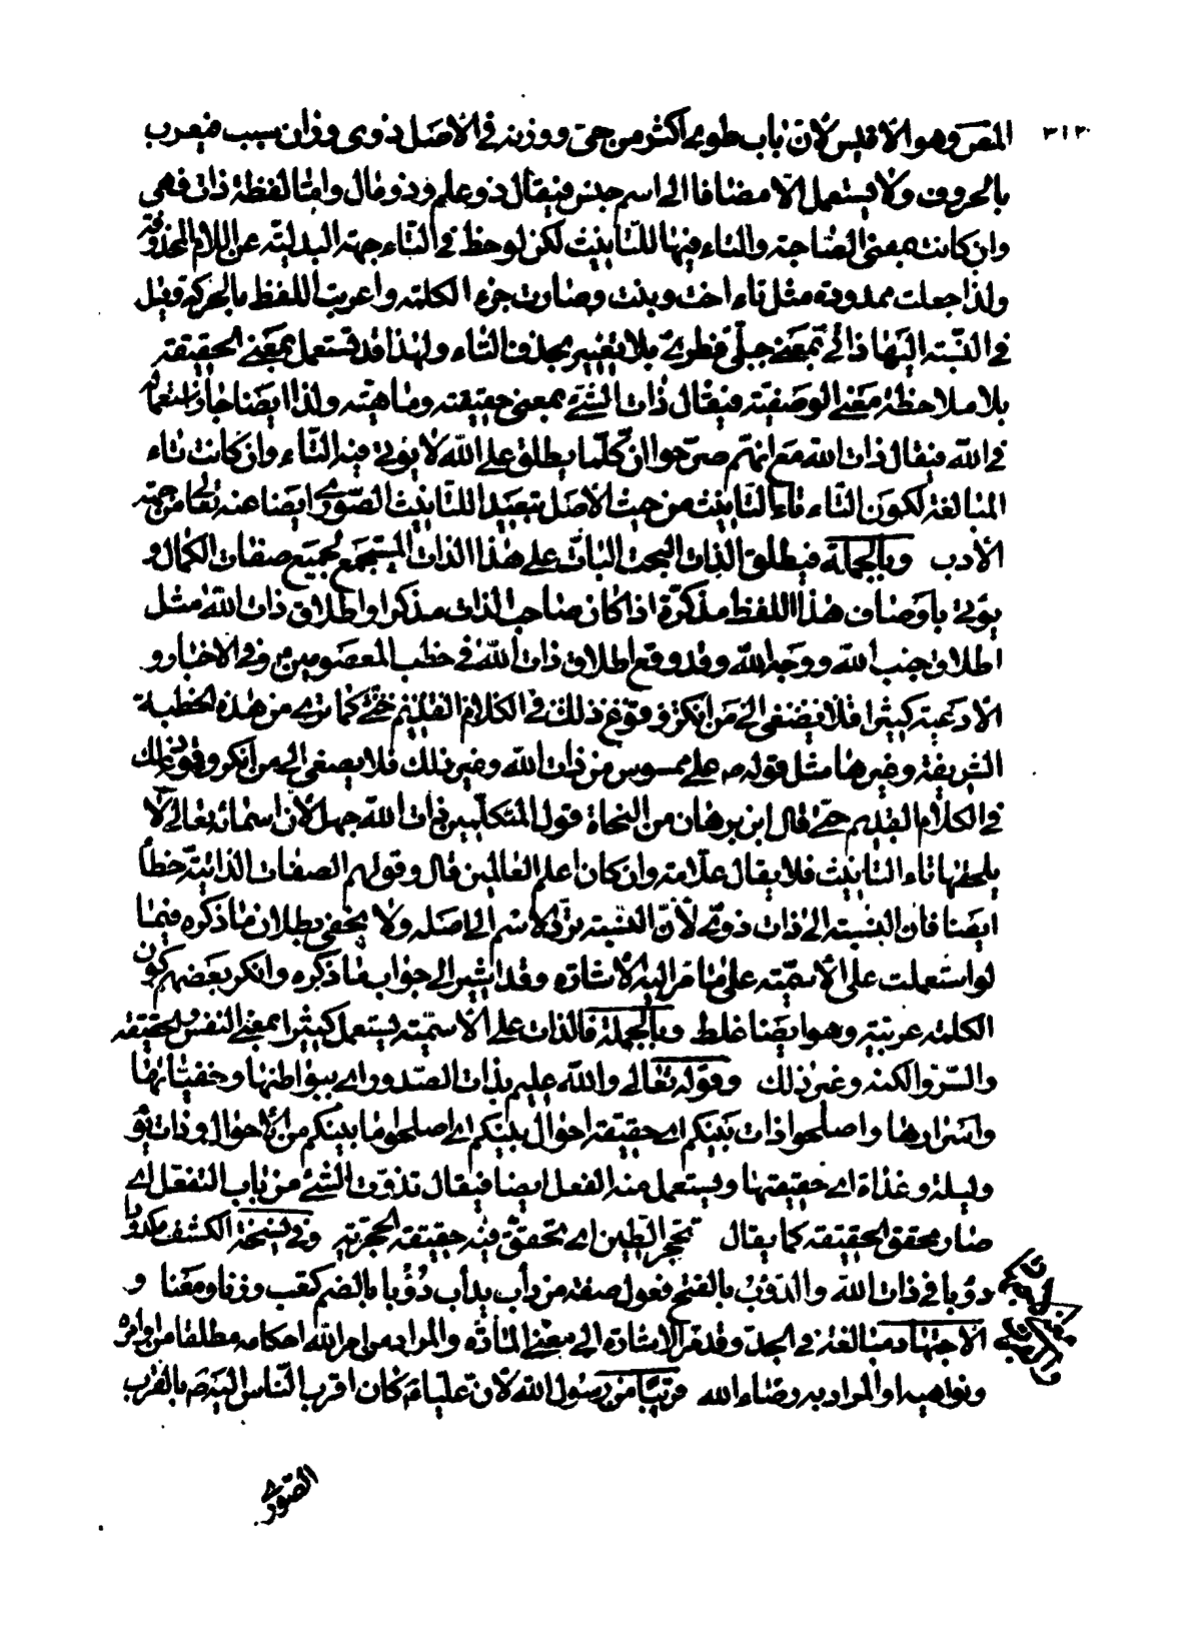 ٣١٣
المقرّ وهو الاقيس لان باب طوى اكثر من حيى ووزنه فى الاصل ذوى وزان سبب فيعرب
بالحروف ولا يستعمل الا مضافا الى اسم جنس فيقال ذو علم وذو مال وامّا لفظة ذات فهى
وان كانت بمعنى الصّاحبة والتاء فيها للتّأنيث لكن لوحظ فى التّاء جهة البدليّة عن اللام المحذوفة
ولذا جعلت ممدودة مثل تاء اخت وبنت وصارت جزء الكلمة واعربت اللفظ بالحركة وقيل
فى النّسبة اليها ذاتىّ بمعنى جبلّى فطرىّ بلا تغيير بحذف التّاء ولهذا قد تستعمل بمعنى الحقيقة
بلا ملاحظة معنى الوصفيّة فيقال ذات الشّئ بمعنى حقيقته وماهيته ولذا ايضا جاز استعمالها
فى الله فيقال ذات الله مع انهم صرّحوا ان كلّما يطلق على الله لا يؤتى فيه التّاء وان كانت تاء
المبالغة لكون التّاء تاء التّأنيث من حيث الأصل تبعيدا للتّأنيث الصّورى ايضا عنه تعالى من جهة
الأدب وبالجملة فيطلق الذات البحت البات على هذا الذات المستجمع لجميع صفات الكمال و
يؤتى باوصاف هذا اللفظ مذكّرة اذا كان صاحب الذات مذكرا واطلاق ذات الله مثل
اطلاق جنب الله ووجه الله وقد وقع اطلاق ذات الله فى خطب المعصومين وفى الاخبار و
الادعية كثيرا فلا يصغى الى من انكر وقوع ذلك فى الكلام القديم حتى كما ترى من هذه الخطبة
الشريفة وغيرها مثل قوله ص علىّ ممسوس من ذات الله وغير ذلك فلا يصغى الى من انكر وقوع ذلك
فى الكلام القديم حتى قال ابن برهان من النحاة قول المتكلّمين ذات الله جهل لأن اسمائه تعالى لا
يلحقها تاء التأنيث فلا يقال علّامة وان كان اعلم العالمين قال وقولهم الصفات الذاتيّة خطأ
ايضا فان النسبة الى ذات ذوىّ لأنّ النسبة تردّ الاسم الى اصله ولا يخفى بطلان ما ذكره فيما
لو استعملت على الأسميّة على ما مرّ اليه الأشارة وقد اشير الى جواب ما ذكره وانكر بعضهم كون
الكلمة عربيّة وهو ايضا غلط وبالجملة فالذات على الاسميّة يستعمل كثيرا بمعنى النفس والحقيقة
والسّرّ والكنه وغير ذلك وقوله تعالى والله عليم بذات الصّدور اى ببواطنها وخفيّاتها
واسرارها واصلحوا ذات بينكم اى حقيقة احوال بينكم اى اصلحوا ما بينكم من الأحوال وذات يوم
وليلة وغداة اى حقيقتها ويستعمل منه الفعل ايضا فيقال تذوّت الشّئ من باب التفعّل اى
صار محقق الحقيقة كما يقال تحجّر الطّين اى تحقق فيه حقيقة الحجريّة وفى نسخة الكشف مكدودا
دؤبا فى ذات الله والدّؤب بالفتح فعول صفة من دأب يدأب دُؤبا بالضم كقعب وزنا ومعنا و
الاجتهاد مبالغة فى الجدّ وقد مرّ الاشارة الى معنى المادّة والمراد من امر الله احكامه مطلقا من اوامره
ونواهيه او المراد به رضاء الله قريبا من رسول الله لأن عليّا ع كان اقرب النّاس اليه ص بالقرب
الصّورى